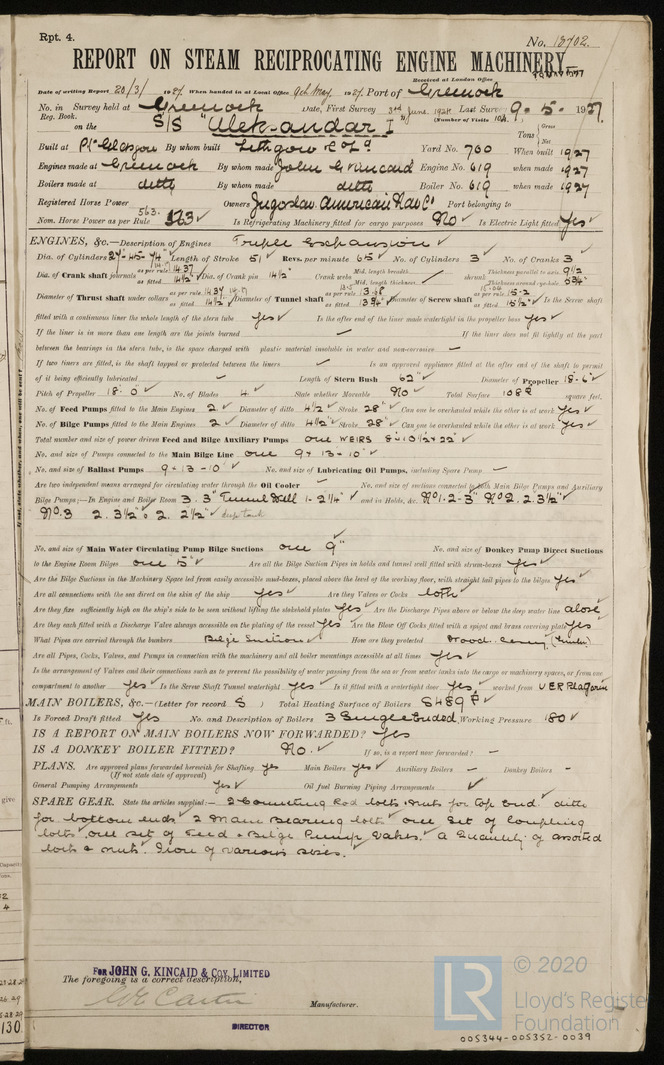 Rpt. 4.
No. 18702.
REPORT ON STEAM RECIPROCATING ENGINE MACHINERY.
Received at London Office
Date of writing Report 20/3/1927. When handed in at Local Office 9th May 1927. Port of Greenock
No. in Survey held at Greenock Date, First Survey 3rd June 1924 Last Survey 9-5-1927
Reg. Book. (Number of Visits
on the S/S "Aleksandar I Tons { Gross Net
Built at Pt Glasgow By whom built Lithgow Ld Yard No. 760 When built 1927
Engines made at Greenock By whom made John G Kincaid Engine No. 619 when made 1927
Boilers made at ditto By whom made ditto Boiler No. 619 when made 1927
Registered Horse Power Owners Jugoslav American Nav Co Port belonging to
Nom. Horse Power as per Rule 563 563 Is Refrigerating Machinery fitted for cargo purposes No Is Electric Light fitted Yes
ENGINES, &c.—Description of Engines Triple Expansion
Dia. of Cylinders 27-45-74 Length of Stroke 51 Revs. per minute 65 No. of Cylinders 3 No. of Cranks 3
Dia. of Crank shaft journals as per rule 14.37 as fitted 14½ Dia. of Crank pin 14½ Crank webs Mid. length breadth — Mid. length thickness — shrunk Thickness parallel to axis 9½ Thickness around eye-hole
Diameter of Thrust shaft under collars as per rule 14.37 as fitted 14½ Diameter of Tunnel shaft as per rule 13.68 as fitted 13¾ Diameter of Screw shaft as per rule 15.2 as fitted 15½ Is the Screw shaft
fitted with a continuous liner the whole length of the stern tube Yes Is the after end of the liner made watertight in the propeller boss Yes
If the liner is in more than one length are the joints burned — If the liner does not fit tightly at the part
between the bearings in the stern tube, is the space charged with plastic material insoluble in water and non-corrosive —
If two liners are fitted, is the shaft lapped or protected between the liners — Is an approved appliance fitted at the after end of the shaft to permit
of it being efficiently lubricated — Length of Stern Bush 62" Diameter of Propeller 18'-6"
Pitch of Propeller 18'-0" No. of Blades 4 State whether Moveable No Total Surface 108 square feet.
No. of Feed Pumps fitted to the Main Engines 2 Diameter of ditto 4½ Stroke 28" Can one be overhauled while the other is at work Yes
No. of Bilge Pumps fitted to the Main Engines 2 Diameter of ditto 4½ Stroke 28" Can one be overhauled while the other is at work Yes
Total number and size of power driven Feed and Bilge Auxiliary Pumps one WEIRS 8-10½-22"
No. and size of Pumps connected to the Main Bilge Line one 9-13-10"
No. and size of Ballast Pumps 9-13-10" No. and size of Lubricating Oil Pumps, including Spare Pump —
Are two independent means arranged for circulating water through the Oil Cooler — No. and size of suctions connected to both Main Bilge Pumps and Auxiliary
Bilge Pumps;—In Engine and Boiler Room 3. 3" Tunnel Well 1-2¼" and in Holds, &c. No 1-2-3" No 2. 2.3½"
No. 3 2. 3½" 2. 2½" deep tank
No. and size of Main Water Circulating Pump Bilge Suctions one 9" No. and size of Donkey Pump Direct Suctions
to the Engine Room Bilges one 5" Are all the Bilge Suction Pipes in holds and tunnel well fitted with strum-boxes Yes
Are the Bilge Suctions in the Machinery Space led from easily accessible mud-boxes, placed above the level of the working floor, with straight tail pipes to the bilges Yes
Are all connections with the sea direct on the skin of the ship Yes Are they Valves or Cocks both
Are they fixed sufficiently high on the ship's side to be seen without lifting the stokehold plates Yes Are the Discharge Pipes above or below the deep water line above
Are they each fitted with a Discharge Valve always accessible on the plating of the vessel Yes Are the Blow Off Cocks fitted with a spigot and brass covering plate Yes
What Pipes are carried through the bunkers Bilge Suctions How are they protected Wood Casing (Timber)
Are all Pipes, Cocks, Valves, and Pumps in connection with the machinery and all boiler mountings accessible at all times Yes
Is the arrangement of Valves and their connections such as to prevent the possibility of water passing from the sea or from water tanks into the cargo or machinery spaces, or from one
compartment to another Yes Is the Screw Shaft Tunnel watertight Yes Is it fitted with a watertight door Yes, worked from UPR Platform
MAIN BOILERS, &c.—(Letter for record S) Total Heating Surface of Boilers 8489
Is Forced Draft fitted Yes No. and Description of Boilers 3 Single Ended, Working Pressure 180
IS A REPORT ON MAIN BOILERS NOW FORWARDED? Yes
IS A DONKEY BOILER FITTED? No. If so, is a report now forwarded? —
PLANS. Are approved plans forwarded herewith for Shafting Yes Main Boilers Yes Auxiliary Boilers — Donkey Boilers —
(If not state date of approval)
General Pumping Arrangements Yes Oil fuel Burning Piping Arrangements
SPARE GEAR. State the articles supplied:— 2 Connecting Rod bolts & nuts for top end ditto
for bottom ends 2 Main Bearing bolts one set of Coupling
bolts, one set of Feed & Bilge Pump Valves. a Quantity of assorted
bolts & nuts. Iron of various sizes.
FOR JOHN G. KINCAID & COY. LIMITED
The foregoing is a correct description,
Manufacturer.
DIRECTOR
LR
© 2020
Lloyd's Register
Foundation
005344-005352-0039
130